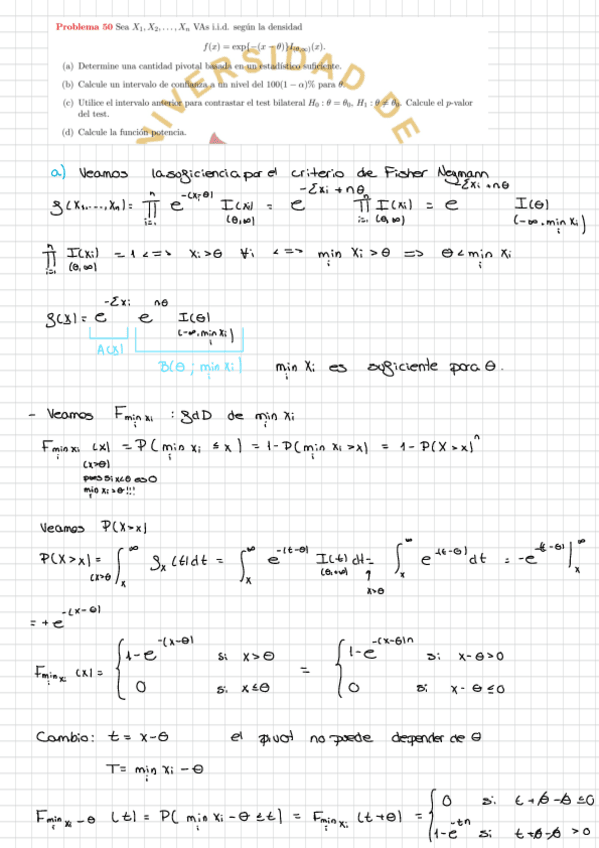 Problema 50 Sea X₁, X₂, . . . , Xₙ VAs i.i.d. según la densidad
f(x) = exp{−(x − θ)}I₍θ,∞₎(x).
(a) Determine una cantidad pivotal basada en un estadístico suficiente.
(b) Calcule un intervalo de confianza a un nivel del 100(1 − α)% para θ.
(c) Utilice el intervalo anterior para contrastar el test bilateral H₀ : θ = θ₀, H₁ : θ ≠ θ₀. Calcule el p-valor
del test.
(d) Calcule la función potencia.
VERSIDAD DE
a) Veamos la suficiencia por el criterio de Fisher Neymann
f(x₁,...,xₙ) = ∏ᵢ₌₁ⁿ e^-(xᵢ-θ) I(xᵢ)(θ,∞) = e^-Σxᵢ+nθ ∏ᵢ₌₁ⁿ I(xᵢ)(θ,∞) = e^-Σxᵢ+nθ I(θ)(-∞, min xᵢ)
∏ᵢ₌₁ⁿ I(xᵢ)(θ,∞) = 1 <=> xᵢ > θ ∀i <=> min xᵢ > θ => θ < min xᵢ
f(x) = e^-Σxᵢ e^nθ I(θ)(-∞, min xᵢ)
A(x)
B(θ; min xᵢ) min xᵢ es suficiente para θ.
- Veamos F min xᵢ : fdD de min xᵢ
F min xᵢ (x) = P(min xᵢ ≤ x) = 1 - P(min xᵢ > x) = 1 - P(X > x)ⁿ
(x>θ)
pues si x<θ es 0
min xᵢ > θ!!!
Veamos P(X>x)
P(X>x) = ∫ₓ^∞ fₓ(t)dt = ∫ₓ^∞ e^-(t-θ) I(t)(θ,+∞) dt = ∫ₓ^∞ e^-(t-θ) dt = -e^-(t-θ) |ₓ^∞
(x>θ x>θ
= + e^-(x-θ)
F min xᵢ (x) = { 1-e^-(x-θ) si x>θ = { 1-e^-(x-θ)n si x-θ>0
0 si x≤θ 0 si x-θ≤0
Cambio: t = x-θ el pivot no puede depender de θ
T = min xᵢ - θ
F min xᵢ - θ (t) = P(min xᵢ - θ ≤ t) = F min xᵢ (t+θ) = { 0 si t+θ-θ≤0
1-e^-tn si t+θ-θ>0